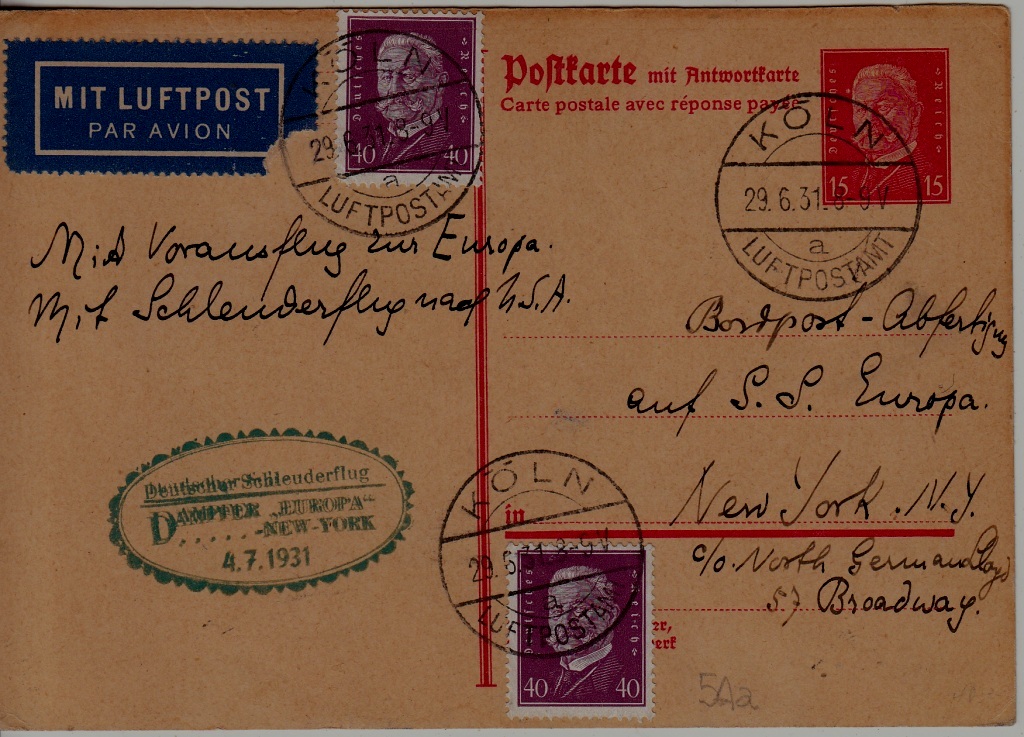 MIT LUFTPOST
PAR AVION
Deutsches Reich
40 40
KÖLN
29.6.31.8-9V
a
LUFTPOSTAMT
Postkarte mit Antwortkarte
Carte postale avec réponse payée
Deutsches Reich
15 15
KÖLN
29.6.31.8-9V
a
LUFTPOSTAMT
Mit Vorausflug zur Europa.
Mit Schleuderflug nach U.S.A.
Bordpost-Abfertigung
auf S.S. Europa.
New York. N.Y.
in
c/o. North German Lloyd
57 Broadway.
Deutscher Schleuderflug
DAMPFER „EUROPA“
-NEW-YORK
4.7.1931
KÖLN
29.6.31.8-9V
a
LUFTPOSTAMT
Deutsches Reich
40 40
5Aa